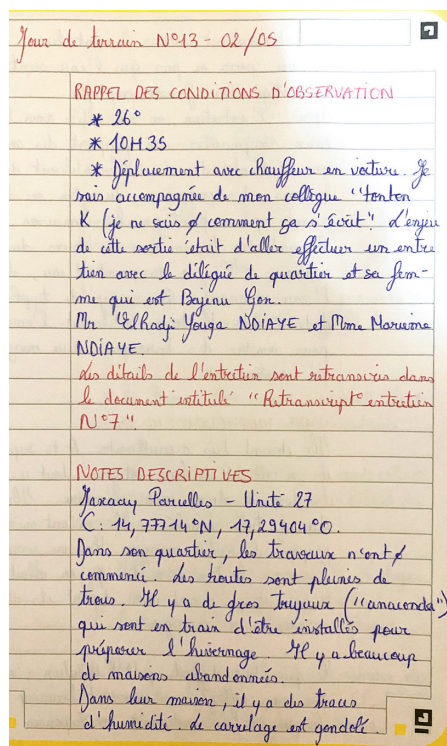 Jour de terrain N°13 - 02/05
RAPPEL DES CONDITIONS D'OBSERVATION
* 26°
* 10H35
* Déplacement avec chauffeur en voiture. Je
suis accompagnée de mon collègue "tonton
K (je ne sais ∅ comment ça s'écrit". L'enjeu
de cette sortie était d'aller effectuer un entre
tien avec le délégué de quartier et sa fem-
me qui est Bajenu Gox.
Mr Elhadji Youga NDIAYE et Mme Marieme
NDIAYE.
Les détails de l'entretien sont retranscris dans
le document intitulé "Retranscript° entretien
N°7".
NOTES DESCRIPTIVES
Jaxaay Parcelles - Unité 27
C : 14,77714°N, 17,29404°O.
Dans son quartier, les travaux n'ont ∅
commencé. Les routes sont pleines de
trous. Il y a de gros tuyaux ("anaconda")
qui sont en train d'être installés pour
préparer l'hivernage. Il y a beaucoup
de maisons abandonnées.
Dans leur maison, il y a des traces
d'humidité. Le carrelage est gondolé.